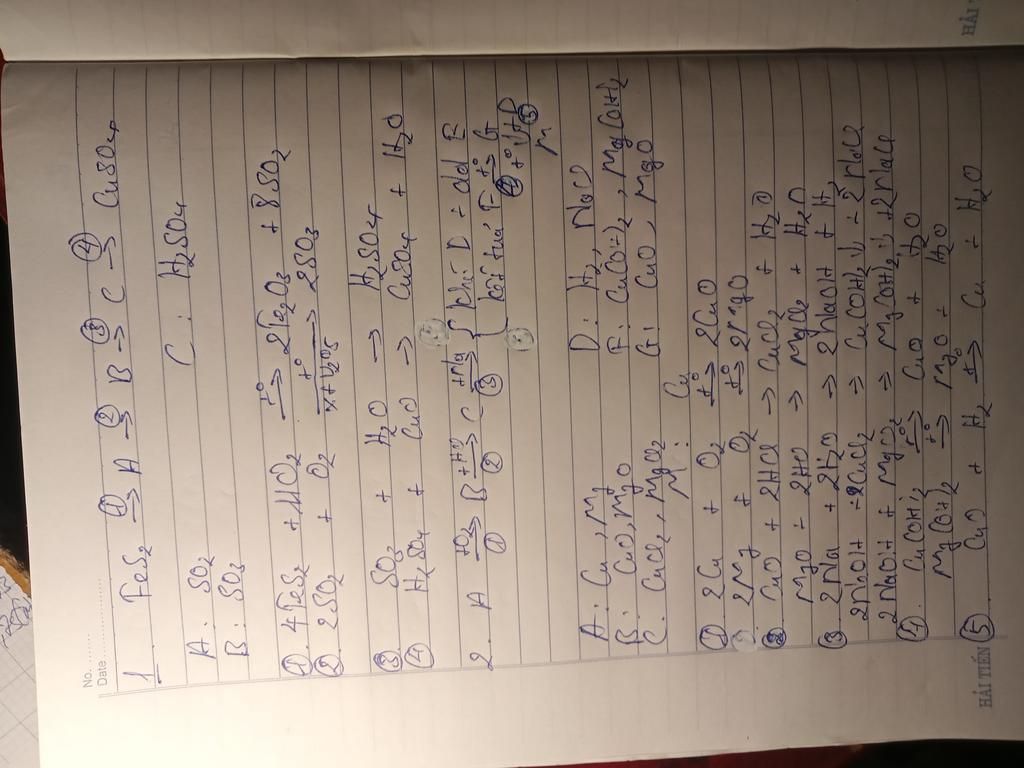 No. ........
Date ....................
1 FeS2 →(1) A →(2) B →(3) C →(4) CuSO4
A: SO2 C: H2SO4
B: SO3
(1). 4FeS2 + 11O2 →t° 2Fe2O3 + 8SO2
(2). 2SO2 + O2 →t° xt V2O5 2SO3
(3) SO3 + H2O → H2SO4
(4) H2SO4 + CuO → CuSO4 + H2O
2. A →+O2 (1) B →+HCl (2) C →+Na (3) { khí D + dd E
{ kết tủa F →t° (4) G →t° + D (5) M
A: Cu, Mg D: H2, NaCl
B: CuO, MgO F: Cu(OH)2, Mg(OH)2
C: CuCl2, MgCl2 G: CuO, MgO
M: Cu
(1) 2Cu + O2 →t° 2CuO
2Mg + O2 →t° 2MgO
(2) CuO + 2HCl → CuCl2 + H2O
MgO + 2HCl → MgCl2 + H2O
(3) 2Na + 2H2O → 2NaOH + H2
2NaOH + CuCl2 → Cu(OH)2↓ + 2NaCl
2NaOH + MgCl2 → Mg(OH)2↓ + 2NaCl
(4). Cu(OH)2 →t° CuO + H2O
Mg(OH)2 →t° MgO + H2O
(5) CuO + H2 →t° Cu + H2O
HẢI TIẾN
HẢI